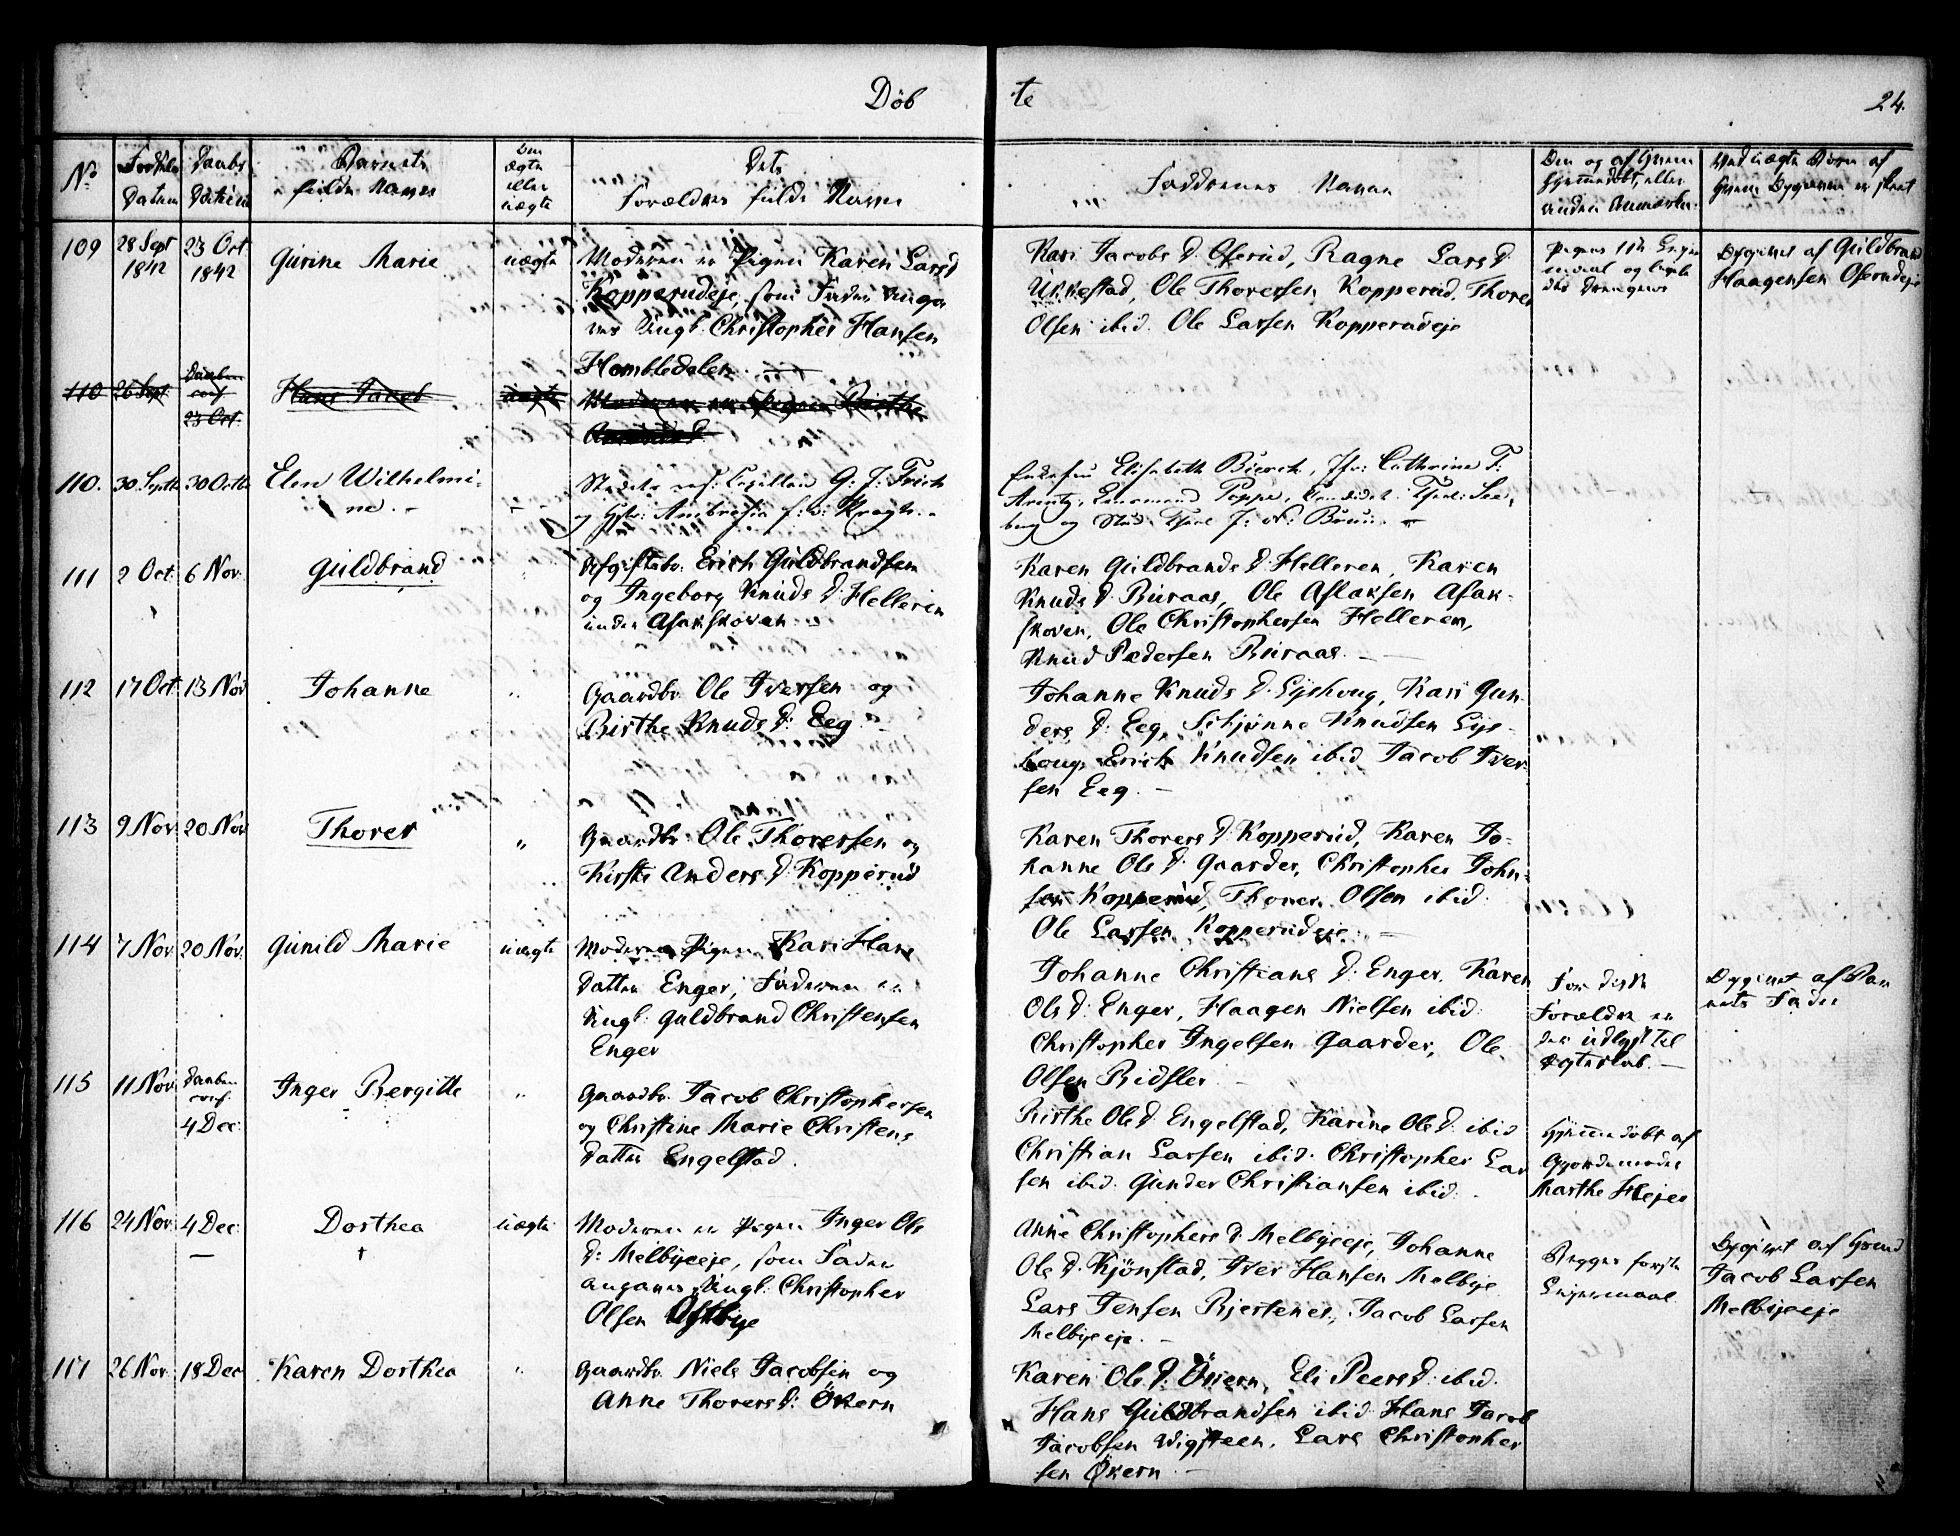 Døb te 24.
No
Fødsels Datum
Daabs Datum
Barnets fulde Navn
Om ægte eller uægte
Dets Forældres fulde Navne
Faddernes Navne
Om og af hvem hjemmedøbt, eller anden Anmærkn.
Ved uægte Børn af hvem Opgivne er skeet
109
28 Sept 1842
23 Oct 1842
Gurine Marie
uægte
Moderen er Pigen Karen Lars D
Kopperudeje, som Fader Angi-
ves Ungk. Christopher Hansen
Hombledalen.
Kari Jacobs D. Oserud, Ragne Lars D.
Ukkestad, Ole Thoresen Kopperud, Thorer
Olsen ibid. Ole Larsen Kopperudeje
Opgivet af Guldbrand
Haagensen Oserudeje
110
26 Sept.
Daaben conf. 23 Oct.
Hans Jacob
uægte
Moderen er Pigen Birthe
110.
30 Septb
30 Octb
Elen Wilhelmi-
ne. -
Elisabeth Bierck, Jfr: Cathrine F:
111
2 Oct.
6 Nov.
Guldbrand
Afgiftsbr. Erich Guldbrandsen
og Ingeborg Knuds D. Helleren
under Asakskoven.
Karen Guldbrands D. Helleren, Karen
Knuds D. Buraas, Ole Aslaksen Asak-
skoven, Ole Christophersen Helleren,
Knud Pedersen Buraas.
112
17 Oct.
13 Nov
Johanne
"
Gaardbr. Ole Iversen og
Birthe Knuds D: Eeg.
Johanne Knuds D. Lyshoug, Kari Gun-
ders D. Eeg, Knudsen Lys-
houg, Erich Knudsen ibid Jacob Iver-
sen Eeg. -
113
9 Nov.
20 Nov
Thorer
"
Gaardbr. Ole Thoresen og
Kirsti Anders D. Kopperud
Karen Thorers D. Kopperud, Karen Jo-
hanne Ols D. Gaarder, Christopher John-
sen Kopperud, Thorer Olsen ibid.
Ole Larsen Kopperudeje. -
114
7 Nov
20 Nov.
Gunild Marie
uægte
Moderen Pigen Kari Hans
Datter Enger, Faderen er
Ungk. Guldbrand Christensen
Enger
Johanne Christians D. Enger, Karen
Ols D. Enger, Haagen Nielsen ibid.
Christopher Ingelsen Gaarder, Ole
Olsen Ridsler. -
For disse
Forældre er
der udlyst til
Ægteskab. -
Opgivet af Bar
nets Fader
115
11 Nov.
Daaben conf. 4 Dec.
Inger Bergitte
"
Gaardbr. Jacob Christophersen
og Christine Marie Christens
Datter Engelstad.
Birthe Ols D. Engelstad, Karine Ols D. ibid
Christian Larsen ibid. Christopher Lar
sen ibid. Gunder Christiansen ibid. -
Hjemmedøbt af
Gjordemoder
Marthe Hejer
116
24 Nov.
4 Dec:
Dorthea
†
uægte
Moderen er Pigen Inger Ols
D: Melbyeeje, som Fader
angives Ungk. Christopher
Olsen Østbye
Anne Christophers D. Melbyeeje, Johanne
Ols D. Kjönstad, Iver Hansen Melbye.
Lars Jensen Bjertenes, Jacob Larsen
Melbyeeje. -
Begges første
Lejermaal
Opgivet af Svend
Jacob Larsen
Melbyeeje
117
26 Nov.
18 Dec
Karen Dorthea
"
Gaardbr. Niels Jacobsen og
Anne Thorers D: Økern
Karen Ols D: Økern, Eli Peers D. ibid.
Hans Guldbrandsen ibid Hans Jacob
Jacobsen Wigsteen. Lars Christopher
sen Økern. -